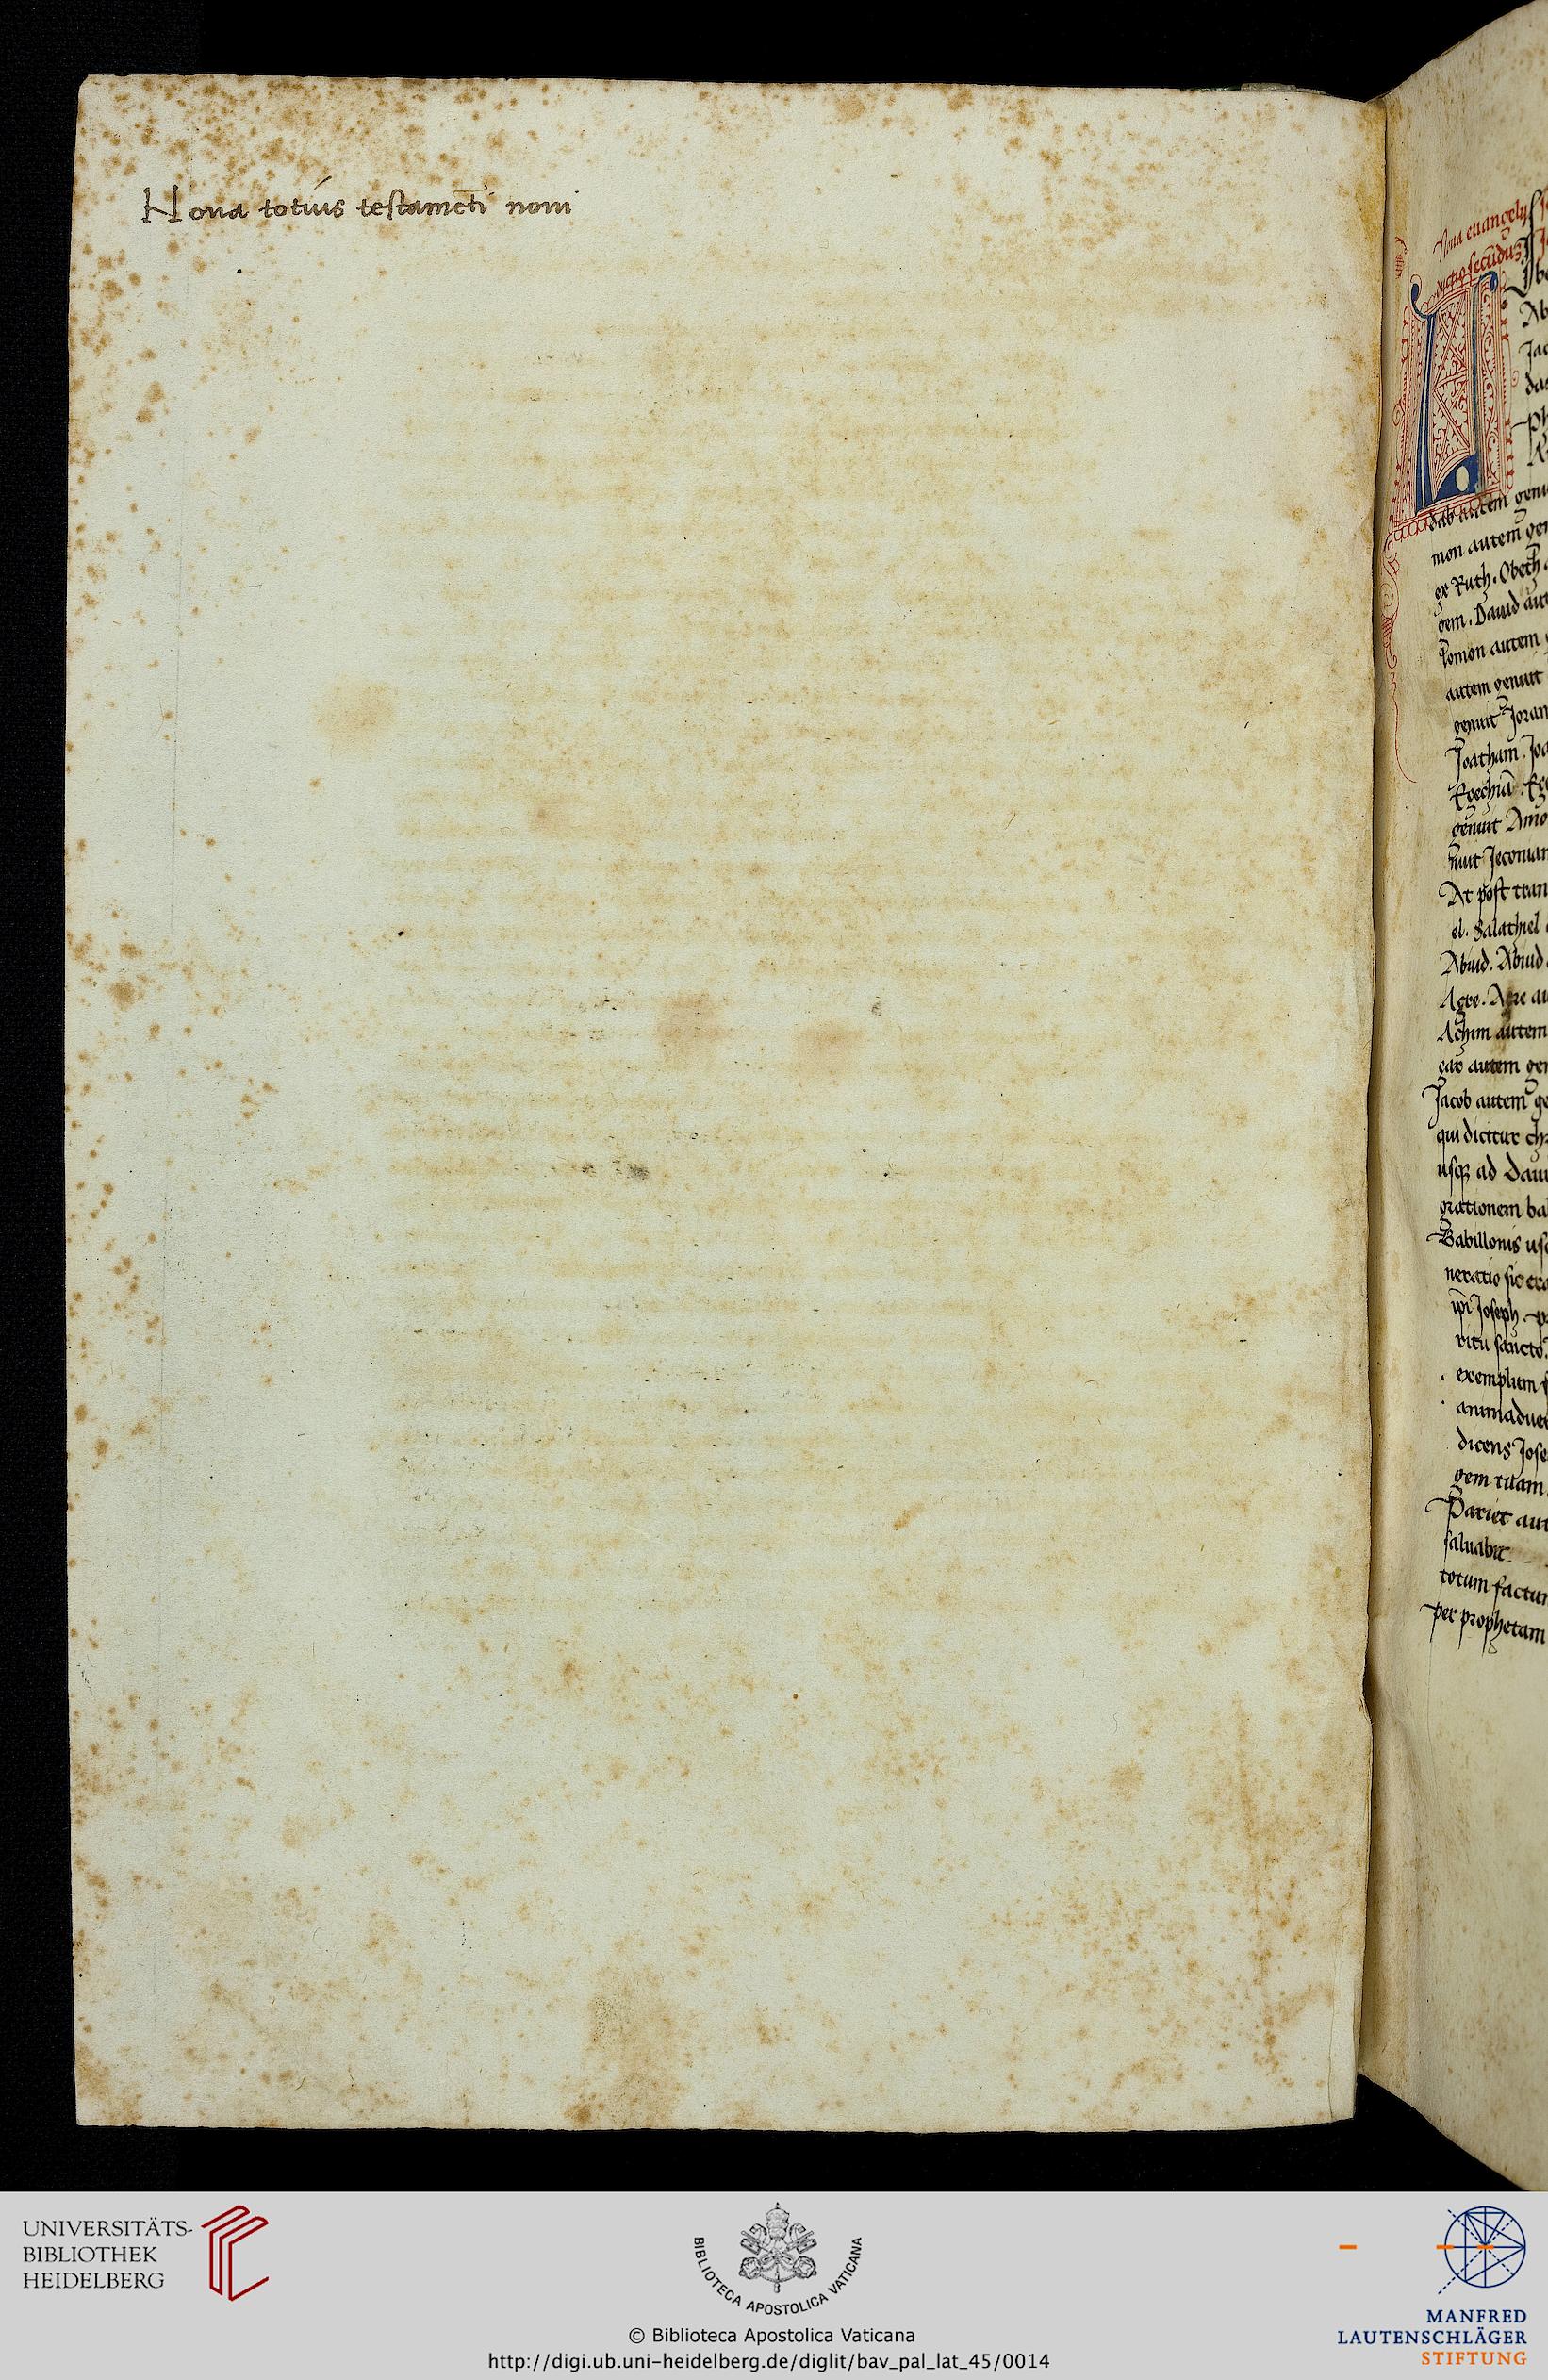 Nova totius testamẽti novi
Nova euangelij
secũdus
dab autem genu
mon autem gen
ex Ruth. Obeth
gem. Dauid aut
lomon autem
autem genuit
genuit Joram
Joatham. Joa
Ezechiã. Eze
genuit Amo
nuit Jeconiam
At post tran
el. Salathiel
Abiud. Abiud
Azre. Azre au
Achim autem
zar autem gen
Jacob autem ge
qui dicitur ch
usq3 ad Daui
grationem ba
Babillonis usq
neratio sic era
Joseph
ritu sancto.
exemplum
animaduer
dicens Jose
gem tuam
Pariet aut
saluabit
totum factum
per prophetam
UNIVERSITÄTS-
BIBLIOTHEK
HEIDELBERG
BIBLIOTECA APOSTOLICA VATICANA
© Biblioteca Apostolica Vaticana
http://digi.ub.uni-heidelberg.de/diglit/bav_pal_lat_45/0014
MANFRED
LAUTENSCHLÄGER
STIFTUNG